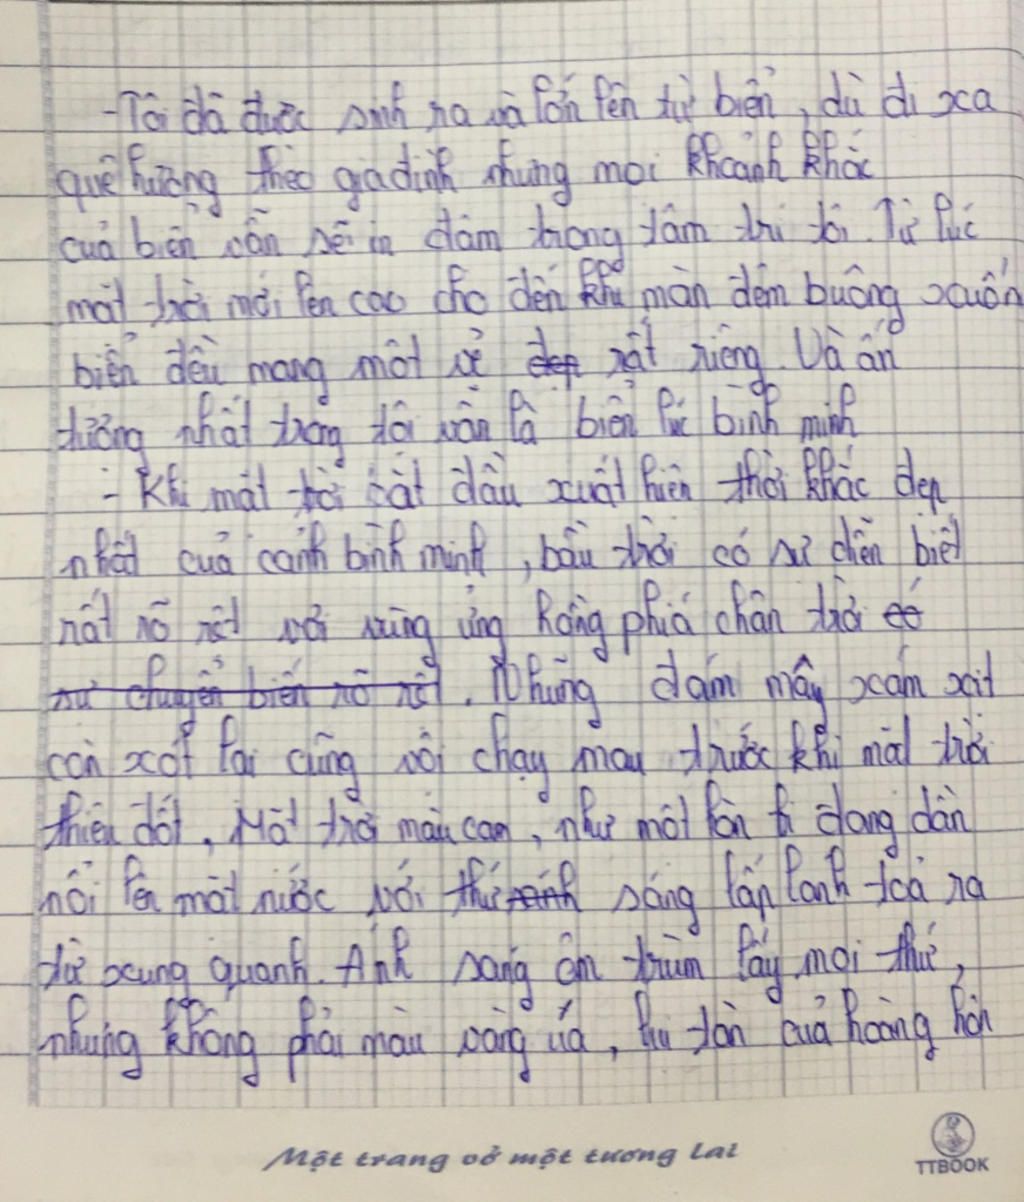 -Tôi đã được sinh ra và lớn lên từ biển, dù đi xa
quê hương theo gia đình nhưng mọi khoảnh khắc
của biển vẫn sẽ in đậm trong tâm trí tôi. Từ lúc
mặt trời mới lên cao cho đến khi màn đêm buông xuốn
biển đều mang một vẻ đẹp rất riêng. Và ấn
tượng nhất trong tôi vẫn là biển lúc bình minh
- Khi mặt trời bắt đầu xuất hiện thời khắc đẹp
nhất của cảnh bình minh, bầu trời có sự diễn biết
rất rõ rệt với vùng ửng hồng phía chân trời có
sự chuyển biến rõ rệt. Những đám mây xám xịt
còn xót lại cũng vội chạy mau trước khi mặt trời
thiêu đốt. Mặt trời màu cam, như một hòn bi đang dần
nổi lên mặt nước với thứ ánh sáng lấp lánh toả ra
từ xung quanh. Ánh sáng ôm trùm lấy mọi thứ,
nhưng không phải màu vàng úa, lụi tàn của hoàng hôn
Một trang vở một tương lai
TTBOOK